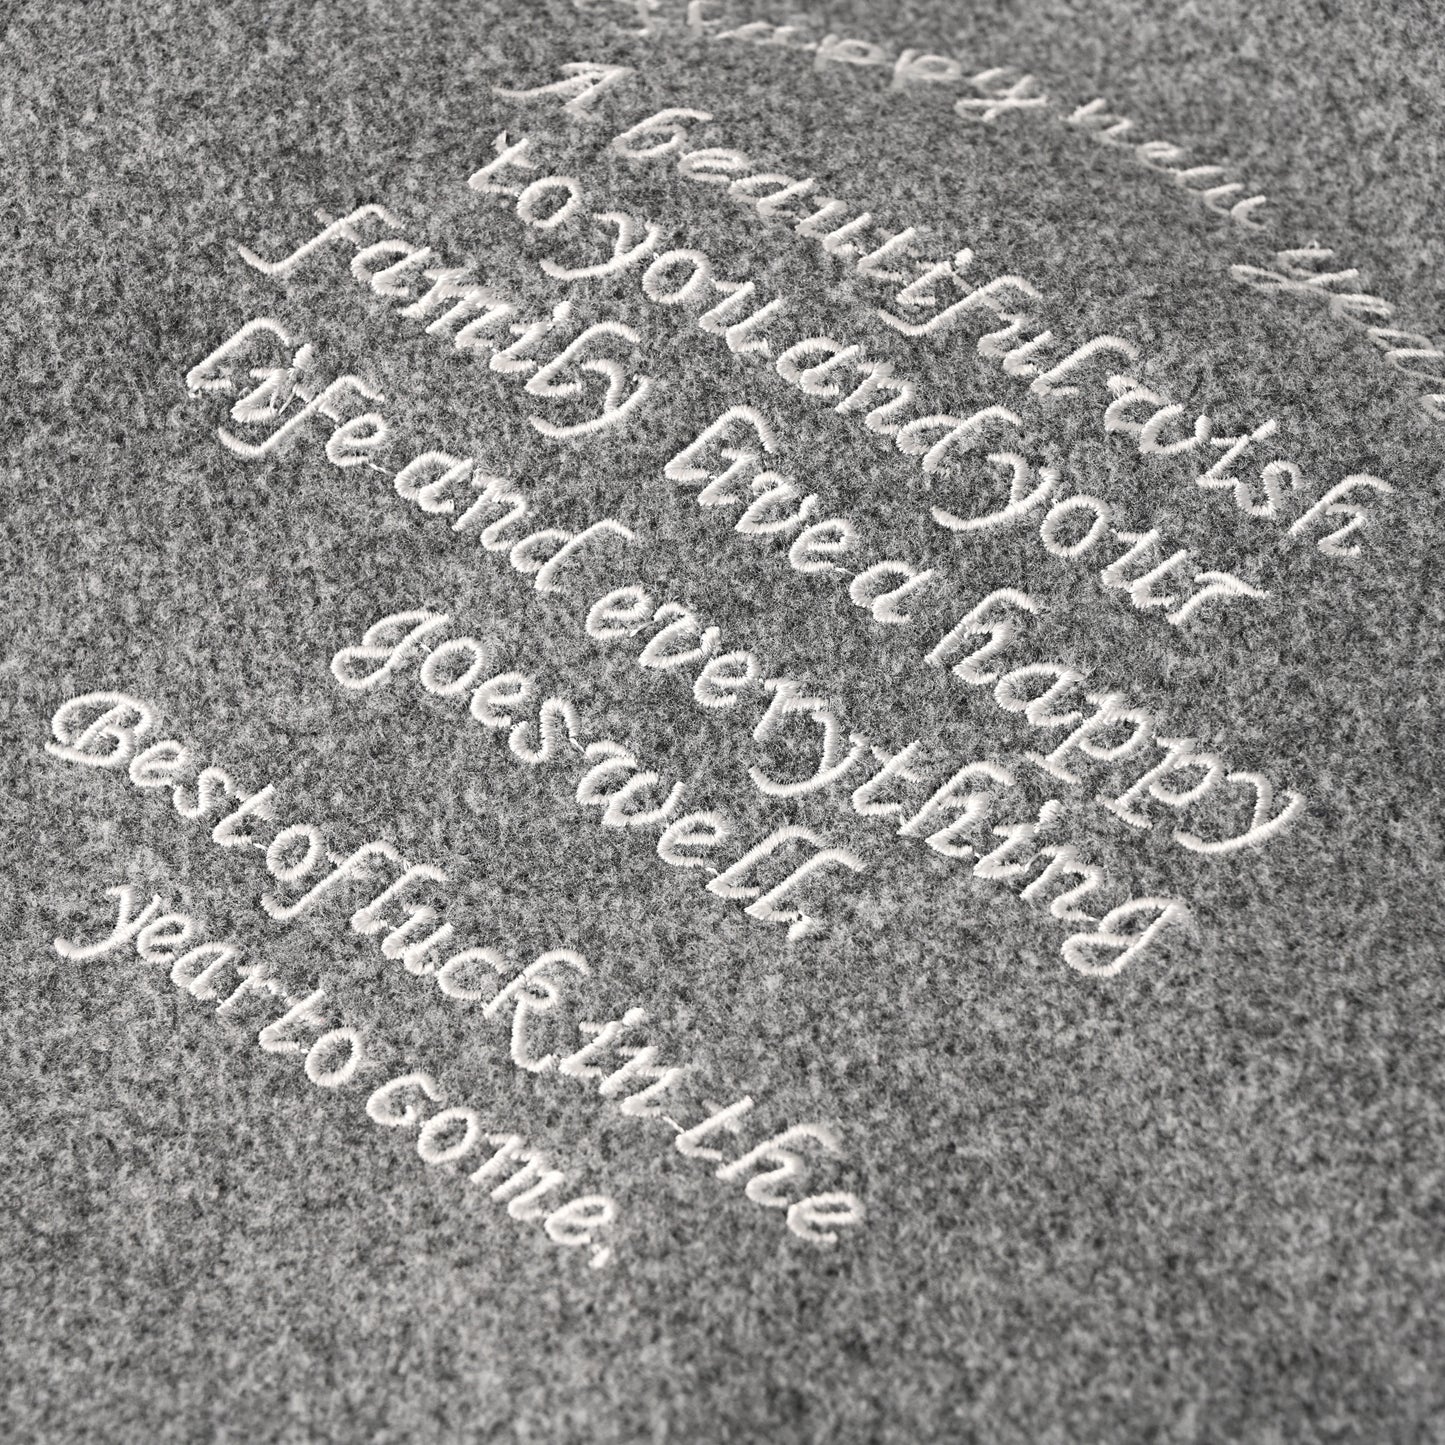 Happy new year
A beautiful wish
to you and your
family lived happy
life and everything
goes well.
Best of luck in the
year to come.